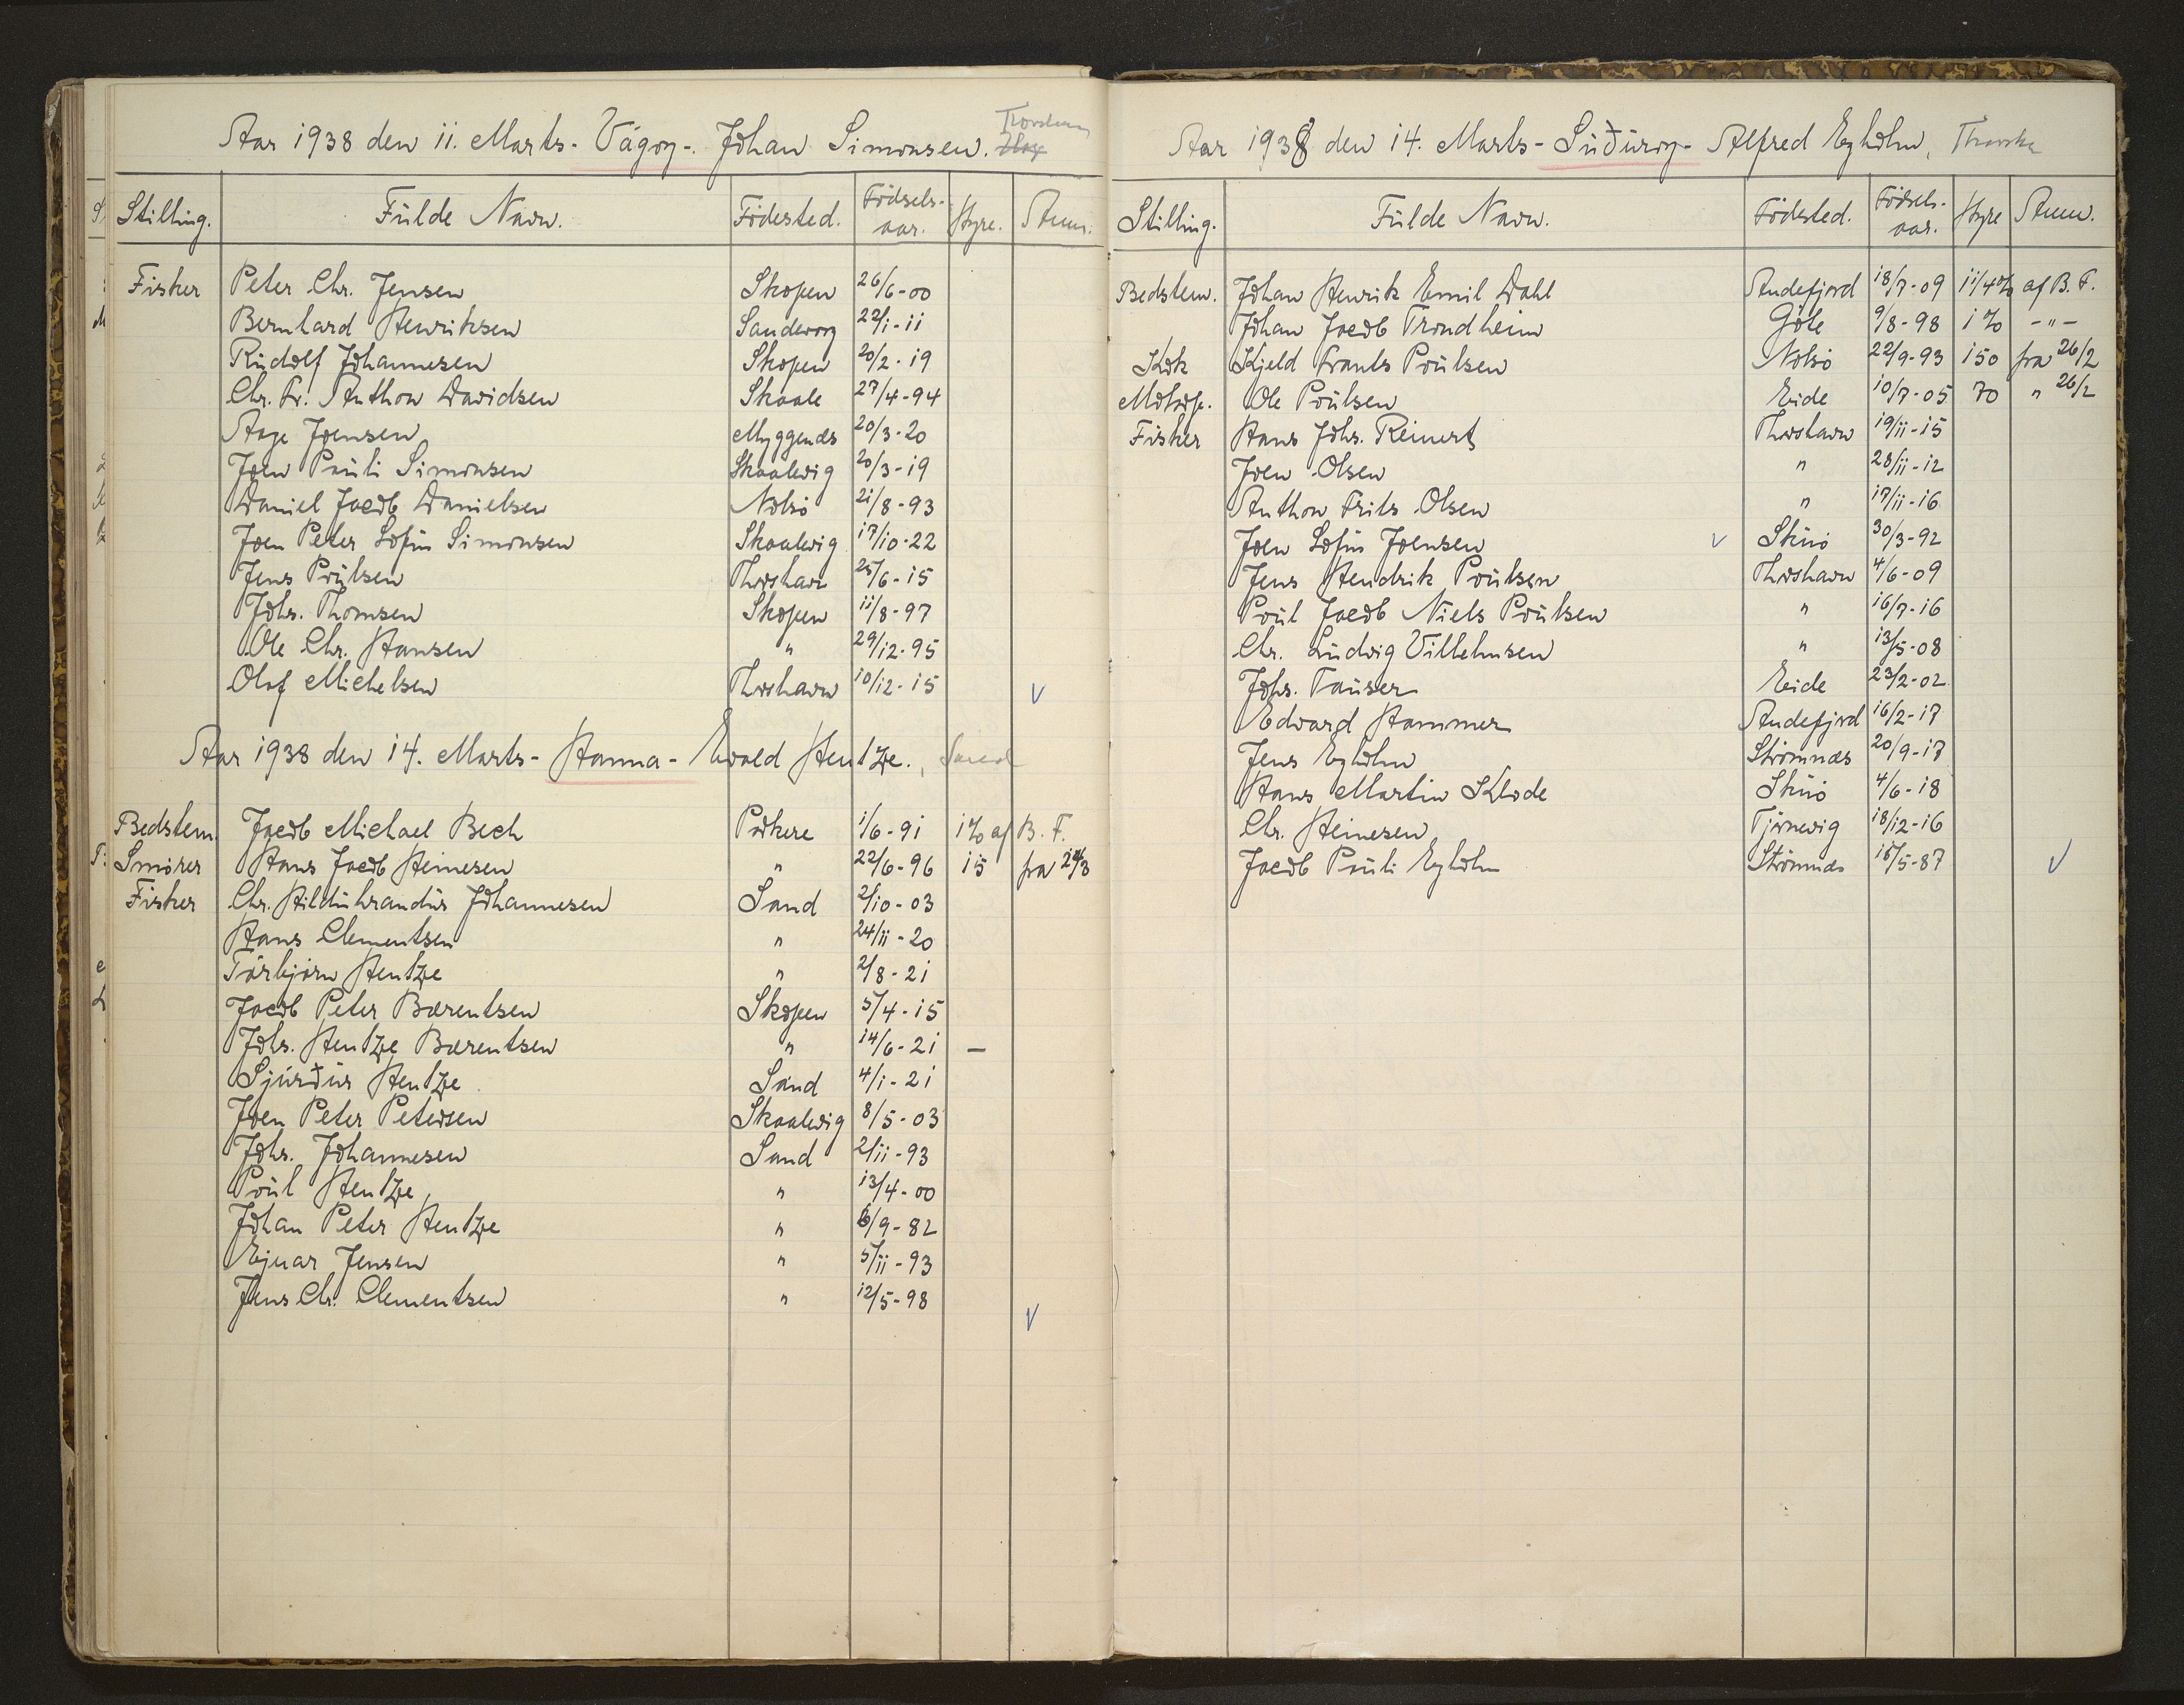 Aar 1938 den 11. Marts - Vágoy - Johan Simonsen. Thorshavn
Stilling. Fulde Navn. Födested. Födsels-aar. Hyre. Anm.
Fisker Peter Chr. Jensen Skopen 26/6-00
Bernhard Henriksen Sandevog 22/1-11
Rudolf Johannesen Skopen 20/2-19
Chr. Fr. Anthon Davidsen Skaale 27/4-94
Aage Joensen Myggenæs 20/3-20
Joen Pauli Simonsen Skaalevig 20/3-19
Daniel Jacob Danielsen Nolsö 21/8-93
Joen Peter Sofus Simonsen Skaalevig 17/10-22
Jens Poulsen Thorshavn 25/6-15
Johs. Thomsen Skopen 11/8-97
Ole Chr. Hansen " 29/12-95
Olaf Michelsen Thorshavn 10/12-15 V
Aar 1938 den 14. Marts - Hanna - Evald Hentze., Sand
Bedstem. Jacob Michael Bech Porkere 1/6-91 1% af B. F.
Smörer Hans Jacob Heinesen " 22/6-96 15 fra 24/3
Fisker Chr. Hildubrandur Johannesen Sand 2/10-03
Hans Clementsen " 24/11-20
Tórbjörn Hentze " 2/8-21
Jacob Peter Bærentsen Skopen 5/4-15
Johs. Hentze Bærentsen " 14/6-21 —
Sjúrður Hentze Sand 4/1-21
Joen Peter Petersen Skaalevig 8/5-03
Johs. Johannesen Sand 2/11-93
Poul Hentze " 13/4-00
Johan Peter Hentze " 6/9-82
Ejnar Jensen " 5/11-93
Jens Chr. Clementsen " 12/5-98 V
Aar 1938 den 14. Marts - Suðuroy - Alfred Eyholm,
Stilling. Fulde Navn. Födested. Födsels-aar. Hyre Anm.
Bedstem. Johan Henrik Emil Dahl Andefjord 18/7-09 1 1/4% af B. F.
Johan Jacob Trondheim Göte 9/8-98 1% -"-
Kok Kjeld Frants Poulsen Nolsö 22/9-93 150 fra 26/2
Motorp. Ole Poulsen Eide 10/7-05 70 " 26/2
Fisker Hans Johs. Reinert Thorshavn 19/11-15
Joen Olsen " 28/11-12
Anthon Frits Olsen " 17/11-16
Joen Sofus Joensen V Skuö 30/3-92
Jens Hendrik Poulsen Thorshavn 4/6-09
Poul Jacob Niels Poulsen " 16/7-16
Chr. Ludvig Vilhelmsen " 13/5-08
Johs. Tausen Eide 23/2-02
Edvard Hammer Andefjord 16/2-17
Jens Eyholm Strömnæs 20/9-17
Hans Martin Klode Skuö 4/6-18
Chr. Heinesen Tjörnevig 18/12-16
Jacob Pauli Eyholm Strömnæs 18/5-87 V